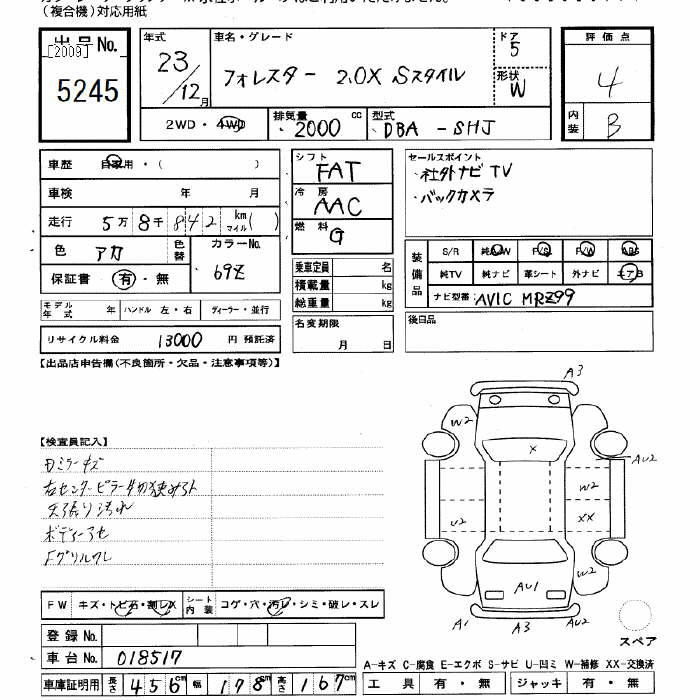 (複合機)対応用紙
出品No. 年式 車名・グレード ドア 評価点
[2009] 23/12月 フォレスター 2.0X Sスタイル 5 4
5245 形状 W
2WD・4WD 排気量 2000 cc 型式 DBA - SHJ 内装 B
車歴 自家用・( )
車検 年 月
走行 5万8千842 km マイル( )
色 アカ 色替 カラーNo. 69Z
保証書 有・無
モデル年式 年 ハンドル 左・右 ディーラー・並行
リサイクル料金 13000 円 預託済
シフト FAT
冷房 AAC
燃料 G
乗車定員 名
積載量 kg
総重量 kg
名変期限
月 日
セールスポイント
・社外ナビ TV
・バックカメラ
装備品 S/R 純A/W P/S P/W ABS
純TV 純ナビ 革シート 外ナビ エアB
ナビ型番 AVIC MRZ99
後日品
【出品店申告欄(不良箇所・欠品・注意事項等)】
【検査員記入】
天張り汚れ
FW キズ・トビ石・割レX シート内装 コゲ・穴・汚レ・シミ・破レ・スレ
登録No.
車台No. 018517
車庫証明用 長さ 456cm 幅 178cm 高さ 167cm
A3
W2
X
AU2
W2
U2
XX
AU1
W2
A1
A3
AU2
スペア
A-キズ C-腐食 E-エクボ S-サビ U-凹ミ W-補修 XX-交換済
工具 有・無 ジャッキ 有・無